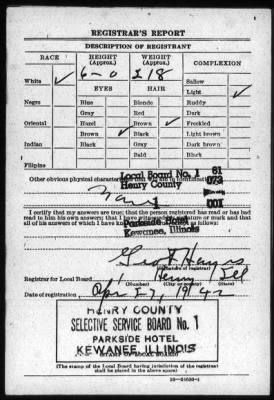 REGISTRAR'S REPORT
DESCRIPTION OF REGISTRANT
RACE HEIGHT (Approx.) WEIGHT (Approx.) COMPLEXION
6-0 218 Sallow
White ✓ Light ✓
EYES HAIR
Negro Blue Blonde Ruddy
Gray Red Dark
Oriental Hazel Brown ✓ Freckled
Brown ✓ Black Light brown
Indian Black Gray Dark brown
Bald Black
Filipino
Other obvious physical characteristics that will aid in identification
Local Board No. 1 61
Henry County 073
1
001
Parkside Hotel
Kewanee, Illinois
I certify that my answers are true; that the person registered has read or has had
read to him his own answers; that I have
all of his answers of which I have
(Signature of registrar)
Registrar for Local Board 1 Henry Ill
(Number) (City or county) (State)
Date of registration Apr 27, 1942
HENRY COUNTY
SELECTIVE SERVICE BOARD No. 1
PARKSIDE HOTEL
KEWANEE, ILLINOIS
(STAMP OF LOCAL BOARD)
(The stamp of the Local Board having jurisdiction of the registrant
shall be placed in the above space)